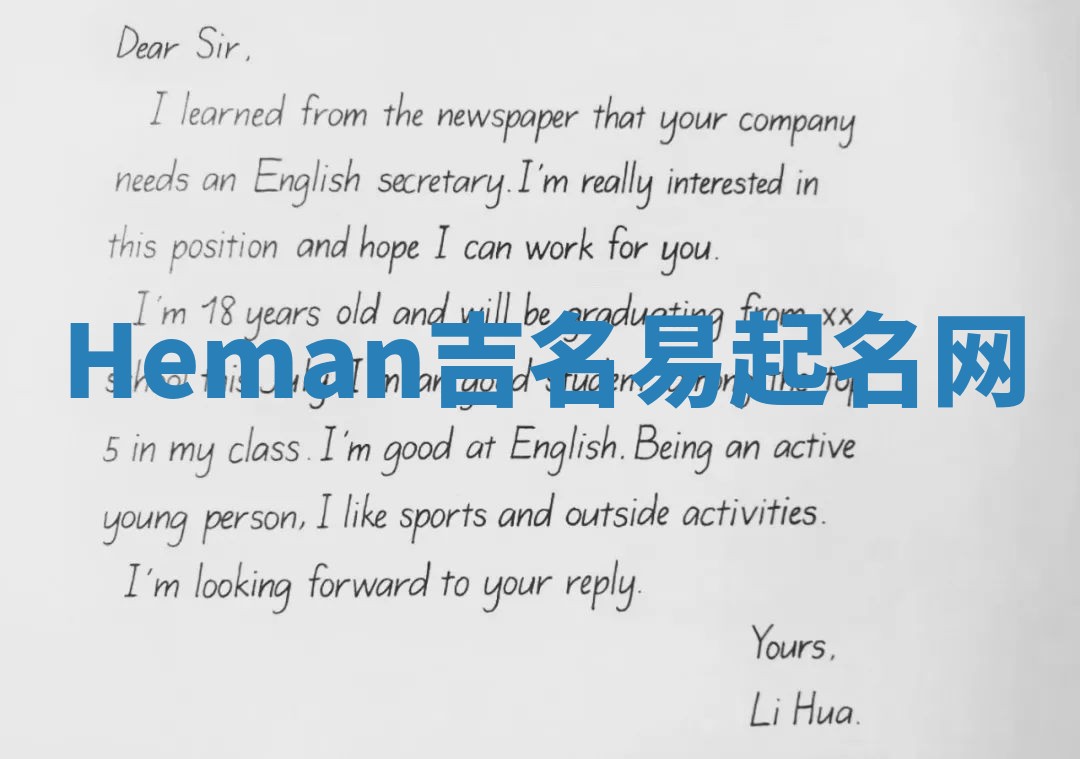 Dear Sir,
I learned from the newspaper that your company
needs an English secretary. I'm really interested in
this position and hope I can work for you.
I'm 18 years old and will be graduating from xx
Heman吉名易起名网
school this July. I'm an good student among the top
5 in my class. I'm good at English. Being an active
young person, I like sports and outside activities.
I'm looking forward to your reply.
Yours,
Li Hua.